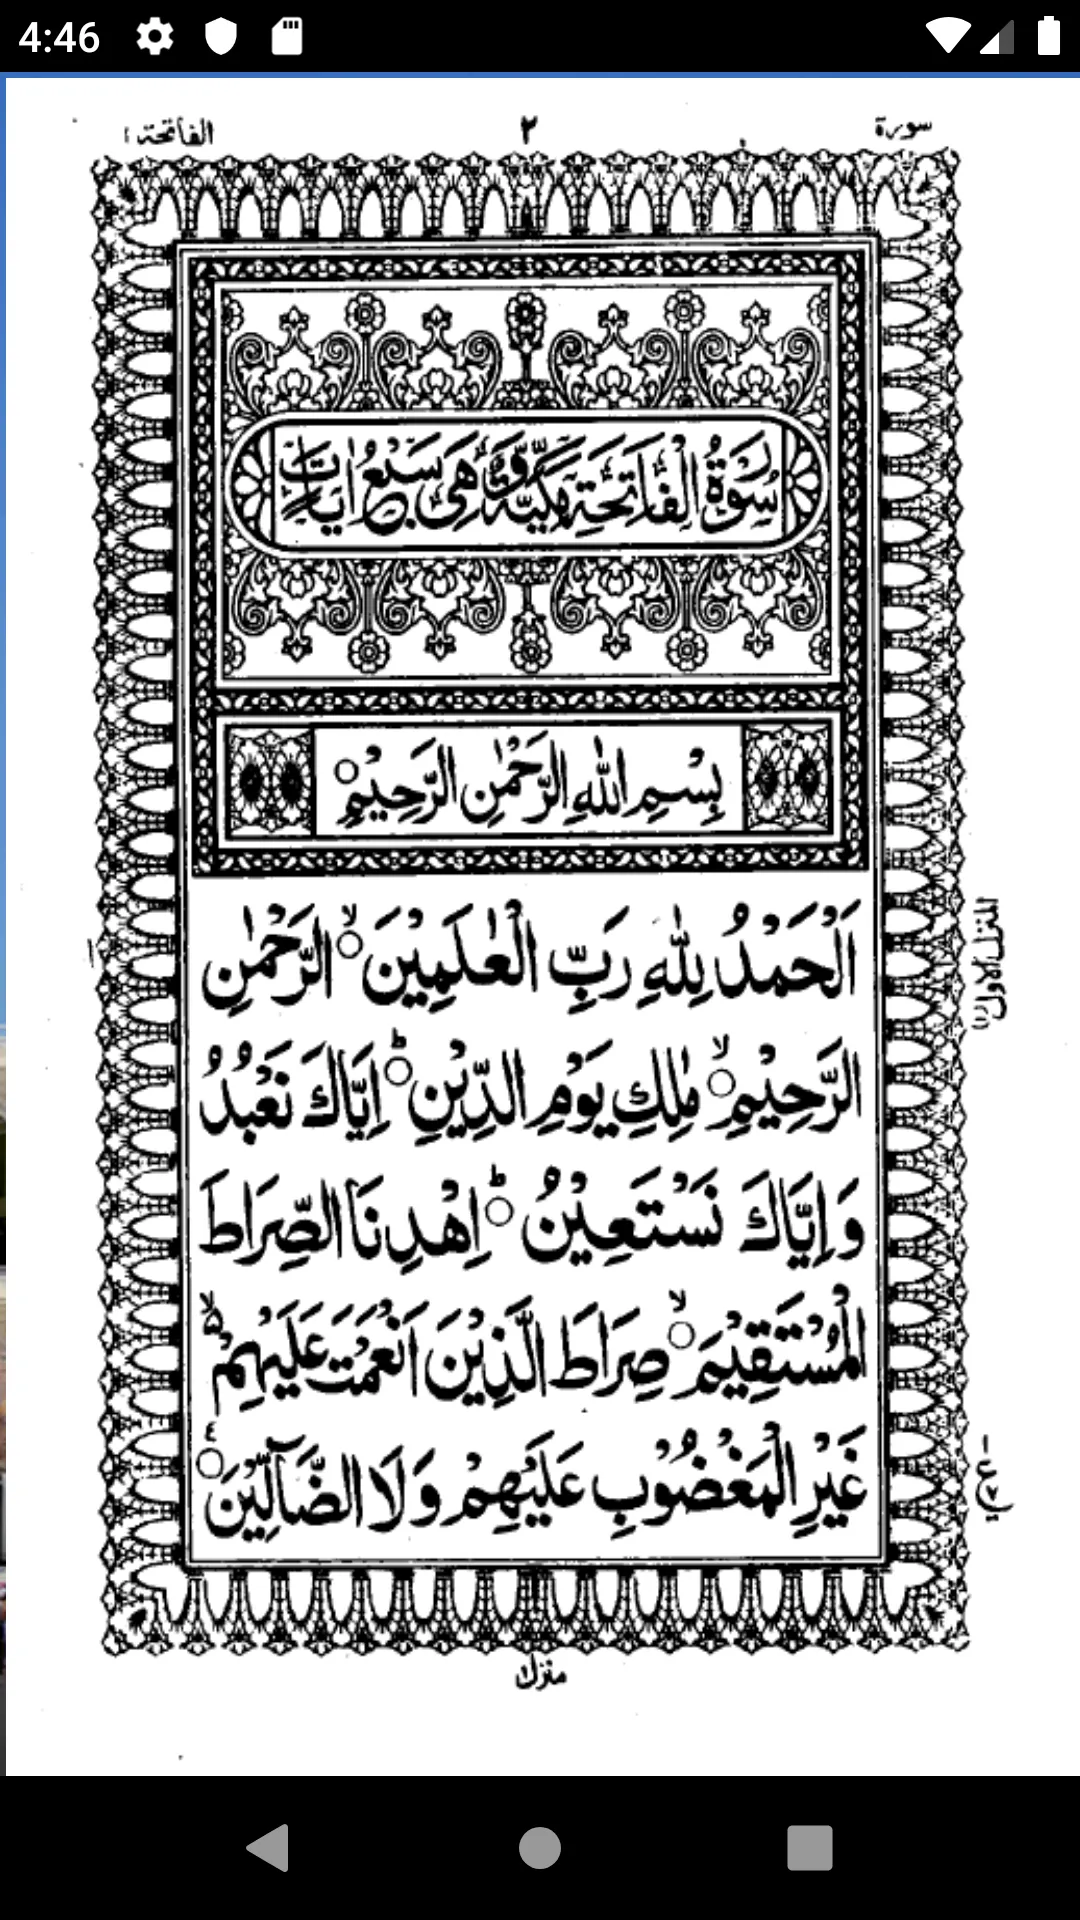 4:46
سورة ٢ الفاتحة ١
سُوْرَةُ الْفَاتِحَةِ مَكِّيَّةٌ وَّهِىَ سَبْعُ اٰيَاتٍ
بِسْمِ اللّٰهِ الرَّحْمٰنِ الرَّحِيْمِ
اَلْحَمْدُ لِلّٰهِ رَبِّ الْعٰلَمِيْنَ ۙ الرَّحْمٰنِ
الرَّحِيْمِ ۙ مٰلِكِ يَوْمِ الدِّيْنِ ؕ اِيَّاكَ نَعْبُدُ
وَاِيَّاكَ نَسْتَعِيْنُ ؕ اِهْدِنَا الصِّرَاطَ
الْمُسْتَقِيْمَ ۙ صِرَاطَ الَّذِيْنَ اَنْعَمْتَ عَلَيْهِمْ ۙ۵
غَيْرِ الْمَغْضُوْبِ عَلَيْهِمْ وَلَا الضَّآلِّيْنَ
المنزل الاول (١)
منزل